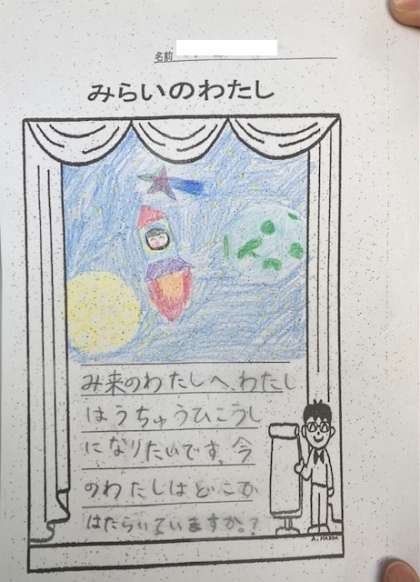 名前
みらいのわたし
み来のわたしへ、わたし
はうちゅうひこうし
になりたいです。今
のわたしはどこで
はたらいていますか。?